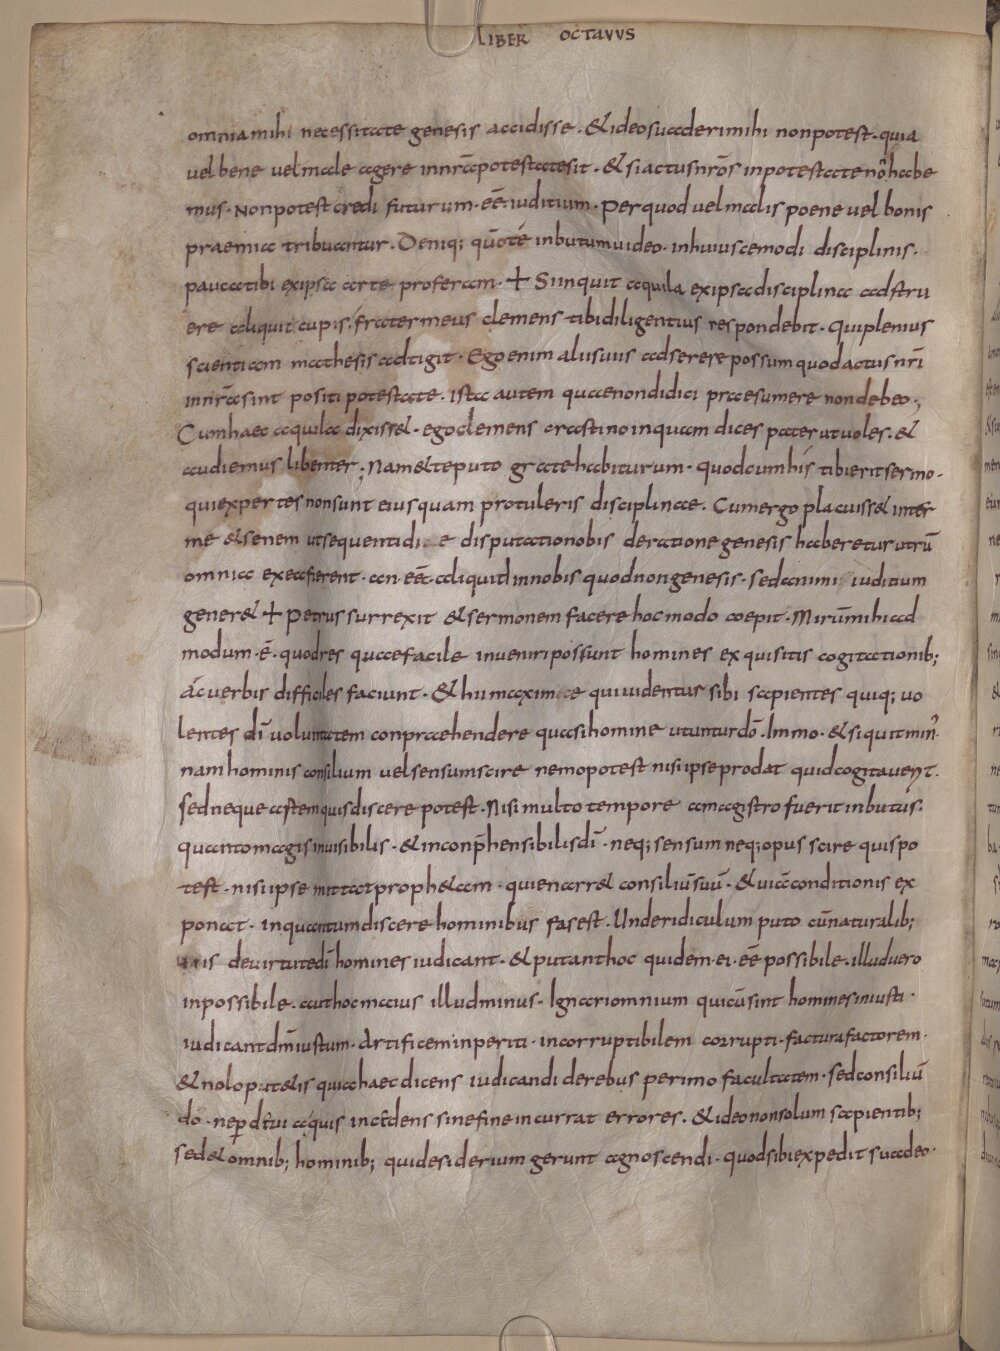 LIBER OCTAVUS
omnia mihi necessitate genesis accidisse · & ideo suaderi mihi non potest · quia
vel bene vel male agere in nr̄a potestate sit · & si actus nr̄os in potestate nō habe
mus · Non potest credi futurum · eē · iuditium · Per quod vel malis poene vel bonis
praemia tribuantur · Deniq; quō te inbutum video · in huiuscemodi disciplinis ·
pauca tibi ex ipsa arte proferam · + Si inquit aquila ex ipsa disciplina adstru
ere aliquit cupis · frater meus clemens tibi diligentius respondebit · Qui plenius
scientiam mathesis adtigit · Ego enim aliis uiis adserere possum quod actus nr̄i
in nr̄a sint positi potestate · Ista autem quae non didici praesumere non debeo ·,
Cum haec aquila dixiss& · ego clemens crastino inquam dices pater ut voles · &
audiemus libenter ; Nam & te puto grate habiturum · quod cum his tibi erit sermo ·
qui expertes non sunt eius quam protuleris disciplinae · Cum ergo placuiss& inter
me & senem ut sequenti die disputatio nobis de ratione genesis haberetur utrū
omnia ex ea fierent · an · eē · aliquid in nobis quod non genesis · sed animi iuditium
gener& + Petrus surrexit & sermonem facere hoc modo coepit · Mirū mihi ad
modum · ē · quod res quae facile inveniri possunt homines exquisitis cogitationib;
ac verbis difficiles faciunt · & hii maxime qui videntur sibi sapientes quiq; vo
lentes dī voluntatem conpraehendere quasi homine utuntur dō · Immo · & si quit min̄ ·
nam hominis consilium vel sensum scire nemo potest nisi ipse prodat quid cogitaverit ·
sed neque artem quis discere potest · Nisi multo tempore a magistro fuerit inbutus ;
quanto magis invisibilis · & inconp̄hensibilis dī · neq; sensum neq; opus scire quis po
test · nisi ipse mittat proph&am · qui enarr& consiliū suū · & viā conditionis ex
ponat · in quantum discere hominibus fas est · Unde ridiculum puto cū naturalib;
viis de virtute dī homines iudicant · & putant hoc quidem · ei · eē possibile · illud vero
inpossibile · aut hoc maius illud minus · Ignari omnium qui cū sint homines iniusti ·
iudicant dm̄ iustum · Artificem inperiti · incorruptibilem corrupti · factura factorem ·
& nolo put&is quia haec dicens iudicandi de rebus perimo facultatem · sed consiliū
do · ne p̱ devia quis incedens sine fine incurrat errores · & ideo non solum sapientib;
sed & omnib; hominib; qui desiderium gerunt agnoscendi · quod sibi expedit suadeo ·